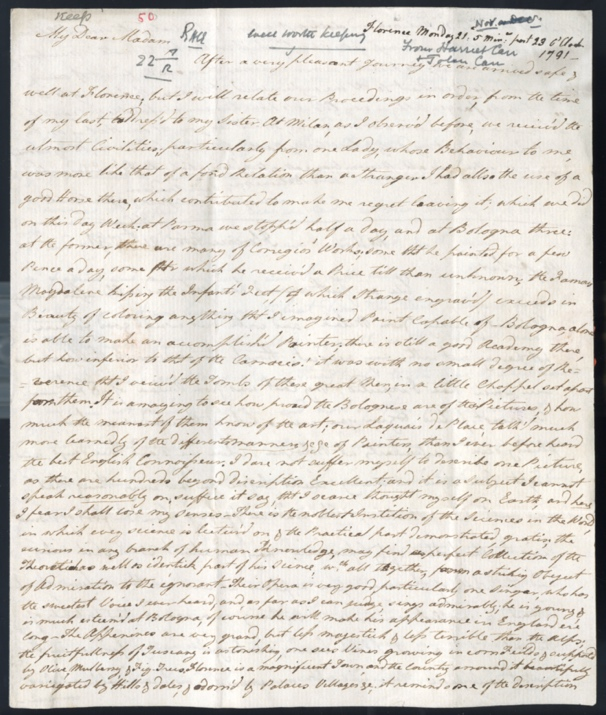 Keep 50 Nov. or Dec.
My Dear Madam well worth keeping Florence Monday 21. 5 Min. past 23 o'Clock
22 From Harriet Carr 1791
& John Carr
After a very pleasant Journey we are arrived safe &
well at Florence, but I will relate our Proceedings in order, from the time
of my last address to my Sister at Milan, as I observ'd before, we receiv'd the
utmost Civilities, particularly from one Lady, whose Behaviour to me,
was more like that of a fond Relation than a Stranger I had allso the use of a
good Horse there, which contributed to make me regret leaving it, which we did
on this day Week; at Parma we stopp'd half a day and at Bologna three:
at the former, there are many of Corregios Works, some tht he painted for a few
Pence a day some for which he receiv'd a Price till than unknown, the famous
Magdalene kissing the Infants Foot (of which Strange engrav'd) exceeds in
Beauty of coloring any thing that I imagined Paint Capable of. Bologna, alone
is able to make an accomplish'd Painter, there is still a good Academy there
but how inferior to tht of the Carracci. it was with no small degree of Re=
=verence tht I view'd the Tombs of these great Men, in a little Chappel set apart
for them. It is amazing to see how proud the Bolognese are of the Pictures, & how
much the meanest of them know of the art; our Laquais de Place talk'd much
more learnedly of the different manners &c &c of Painters, than I ever before heard
the best English Connoisseur. I dare not suffer myself to describe one Picture,
as there are hundreds beyond discription Excellent, and it is a subject I cannot
speak reasonably on, suffice it say, tht I scarce thought myself on Earth, and here
I fear I shall lose my senses. There is the noblest Institution of the Sciences in the World,
in which every science is lectur'd on, & the Practical part demonstrated, gratis, the
curious in any branch of human Knowledge, may find a perfect Collection of the
Theoretical as well as identick part of his Science, wth. all together, form a striking object
of Admiration to the ignorant. Their Opera is very good, particularly one Singer, who has
the sweetest Voice I ever heard, and as far as I can judge sings admirably; he is young &
is much esteem'd at Bologna, of course he will make his appearance in England ere
long. The Appenines are very grand, but less majestick & less terrible than the Alps;
the fruitfullness of Tuscany is astonishing one sees Vines growing in corn Fields & supported
by Olive, Mulberry & Fig Trees. Florence is a magnificent Town, and the Country around it beautifully
variegated by Hills & dales, & adorn'd by Palaces Villages &c, it reminds one of the discription